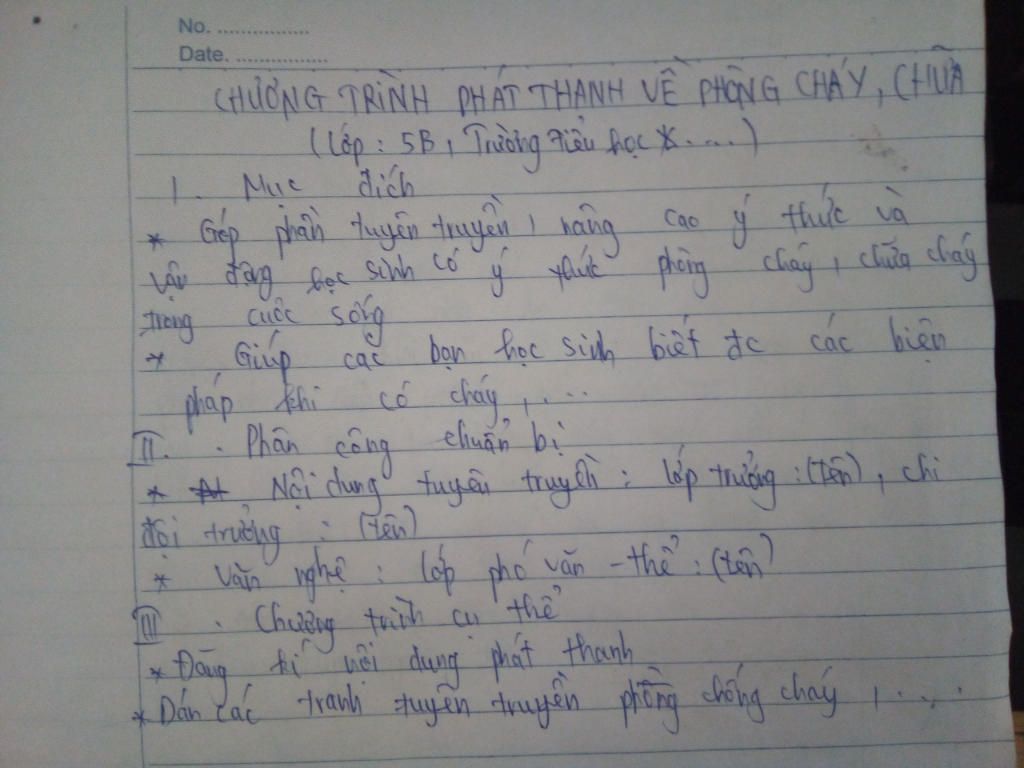 No. ................
Date. ................
CHƯƠNG TRÌNH PHÁT THANH VỀ PHÒNG CHÁY, CHỮA
(Lớp : 5B, Trường Tiểu học X.....)
I. Mục đích
* Góp phần tuyên truyền, nâng cao ý thức và
vận động học sinh có ý thức phòng cháy, chữa cháy
trong cuộc sống
* Giúp các bạn học sinh biết đc các biện
pháp khi có cháy, ....
II. Phân công chuẩn bị
* Nội dung tuyên truyền : lớp trưởng : (tên), chi
đội trưởng : (tên)
* Văn nghệ : lớp phó văn - thể : (tên)
III. Chương trình cụ thể
* Đăng kí nội dung phát thanh
* Dán các tranh tuyên truyền phòng chống cháy, ....